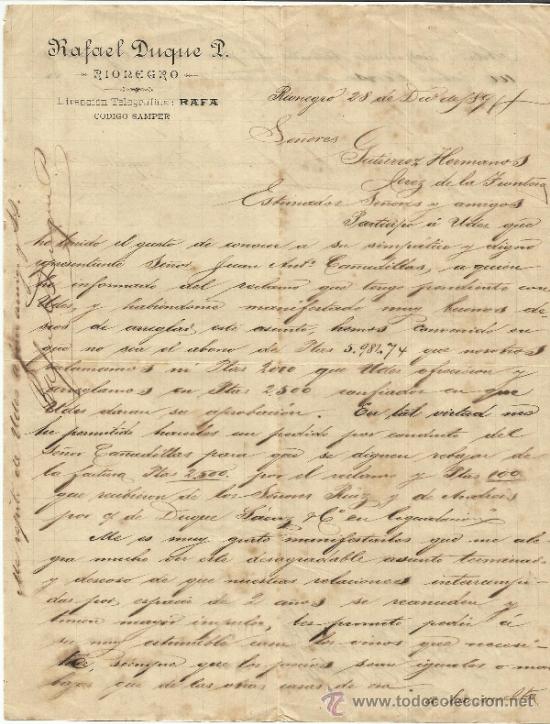 Rafael Duque P.
RIONEGRO
Dirección Telegráfica: RAFA
CODIGO SAMPER
Rionegro 28 de Dic. de 189
Señores
Gutierrez Hermanos
Jerez de la Frontera
Estimados Señores y amigos
Participo á Udes que
he tenido el gusto de conocer a su simpatico y digno
representante Señor Juan Ant.º Cañadillas, a quien
he informado del reclamo que tengo pendiente con
Udes, y habiéndome manifestado muy buenos de-
seos de arreglar este asunto, hemos convenido en
que no sea el abono de Ptas 5.981,74 que nosotros
reclamamos ni Ptas 2000 que Udes ofrecieron y
arreglamos en Ptas 2.500 confiados en que
Udes daran su aprobación. En tal virtud me
he permitido hacerles un pedido por conducto del
Señor Cañadillas para que se dignen rebajar de
la factura Ptas 2.500 por el reclamo y Ptas 100
que recibieron de los Señores Ruiz y de
por de Duque Sáenz & Cª en
Me es muy grato manifestarles que me ale-
gra mucho ver este desagradable asunto terminado
y deseoso de que nuestras relaciones interrumpi-
das por espacio de 2 años se reanuden y
tomen mayor impulso, les prometo pedir á
su muy estimable casa los vinos que necesi-
te, siempre que los precios sean iguales o mas
bajos que de las otras casas de esa.
todocoleccion